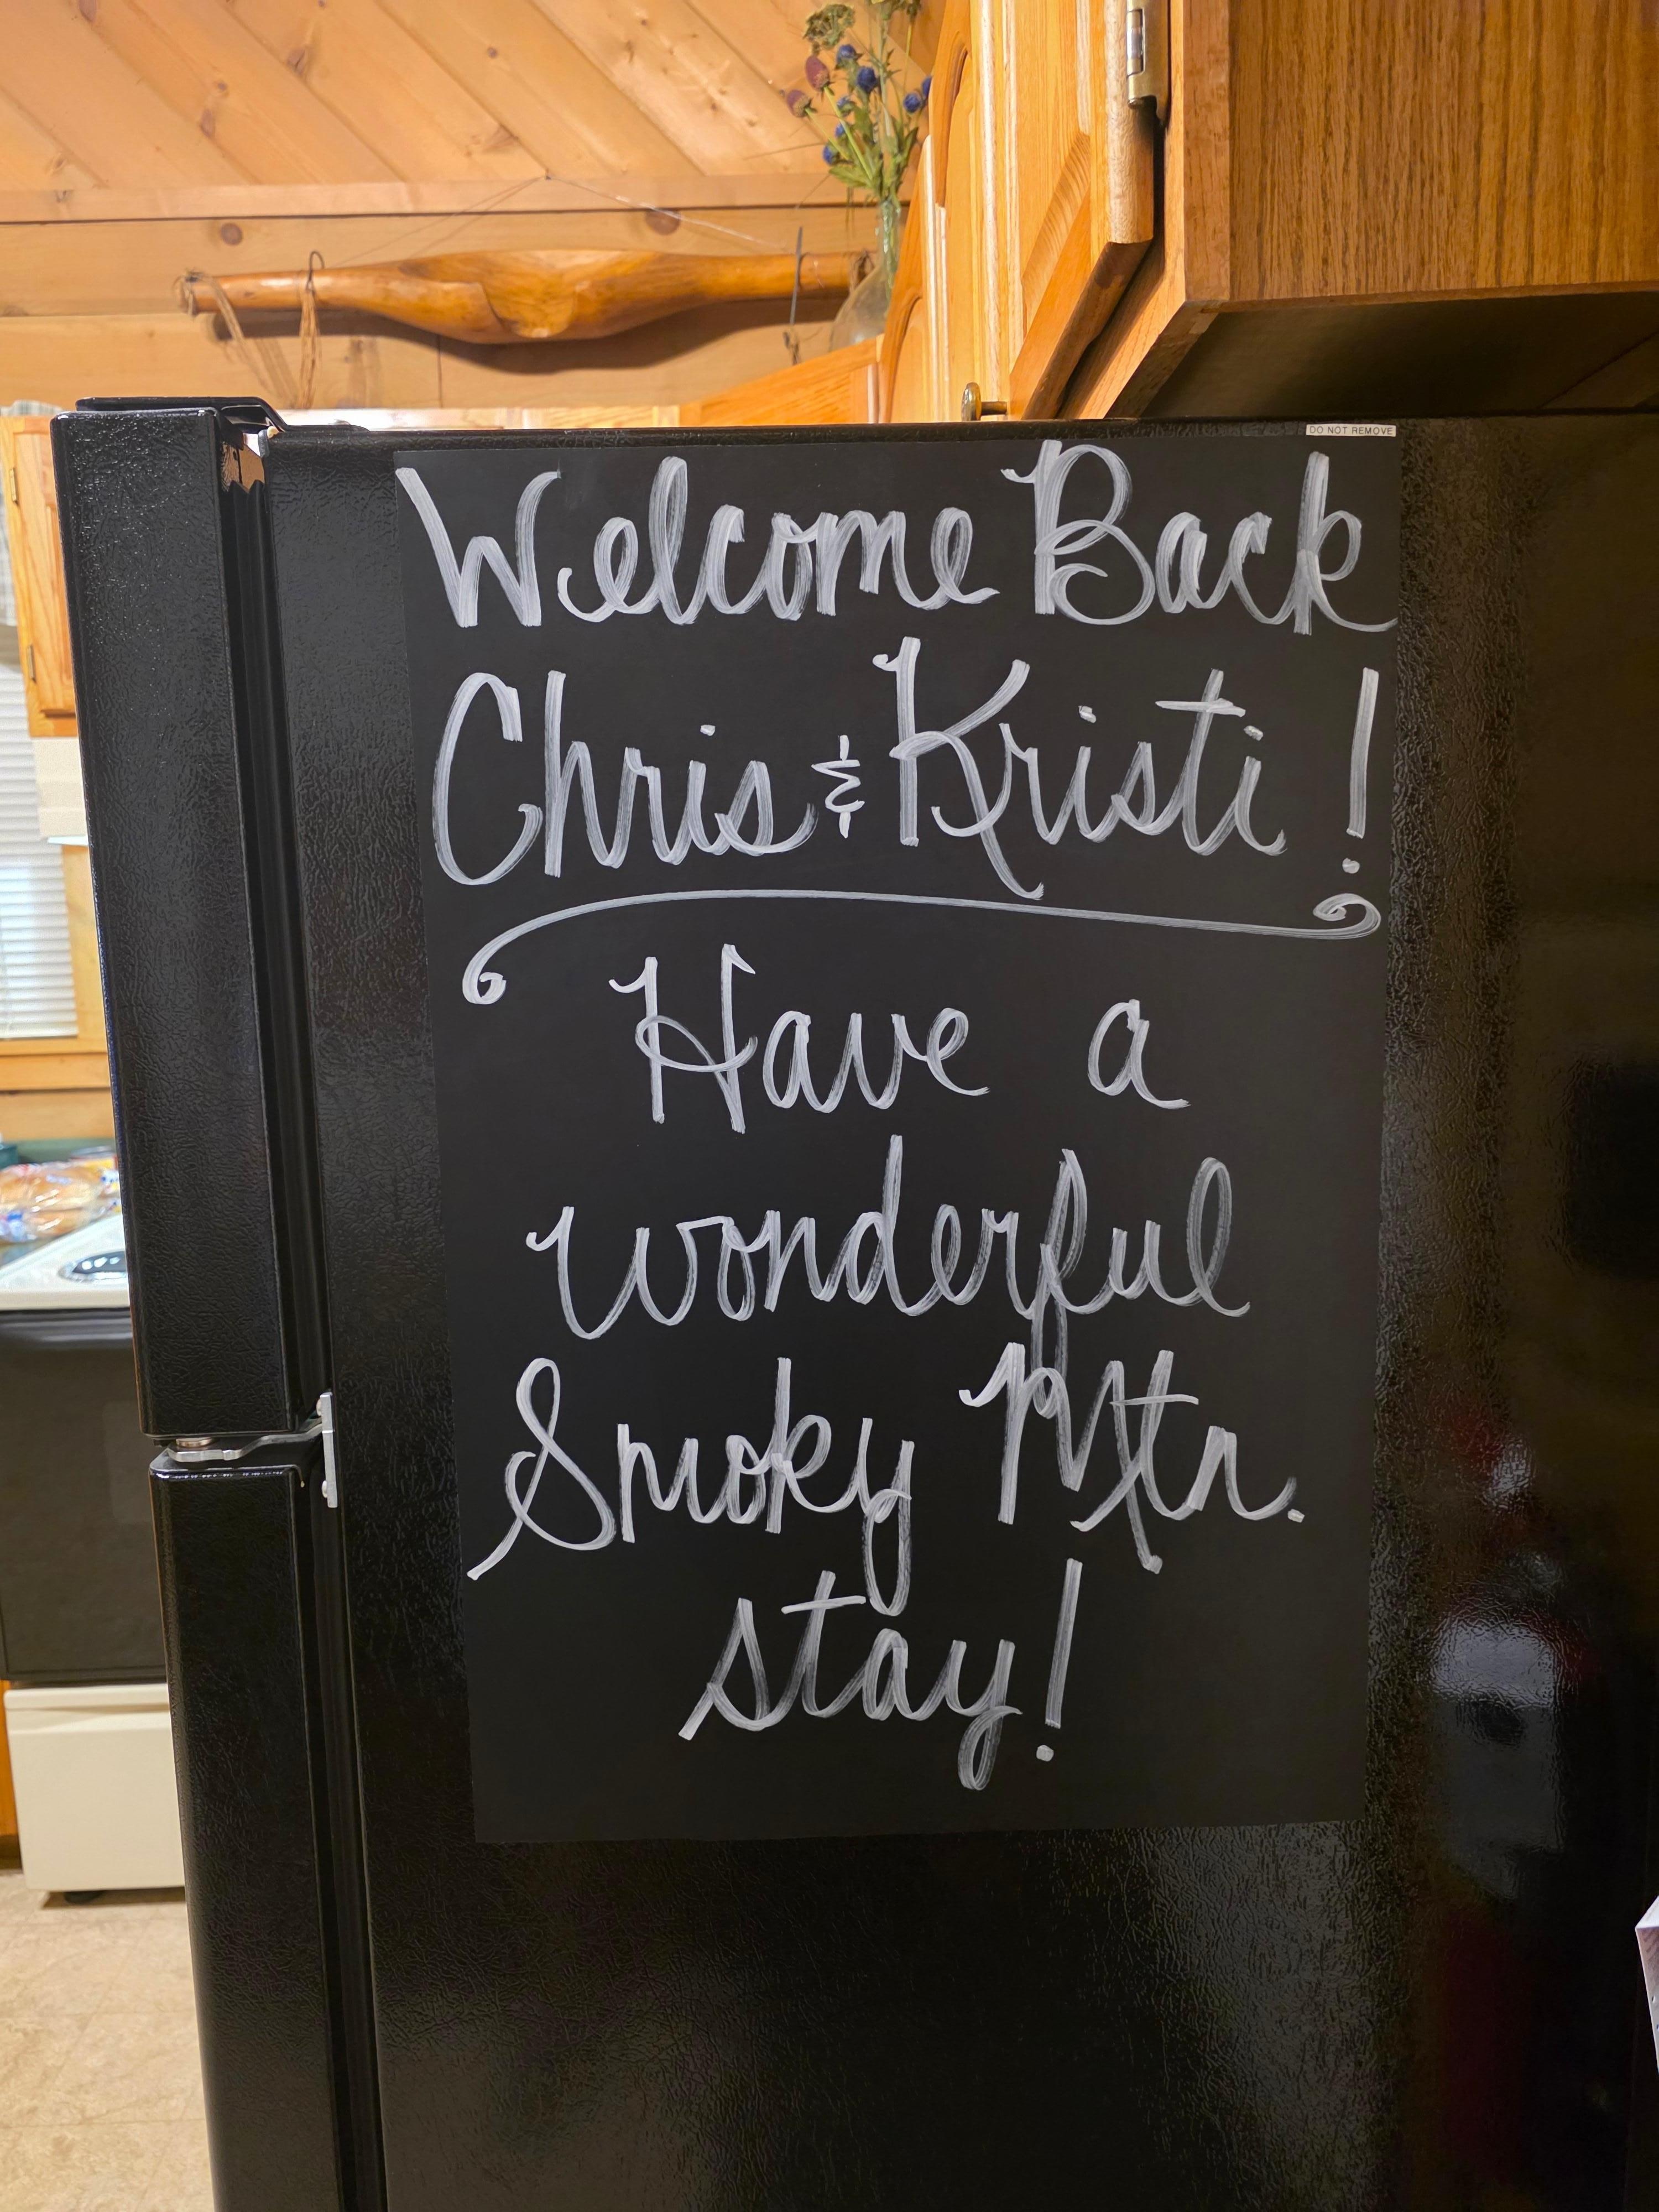 DO NOT REMOVE
Welcome Back
Chris & Kristi!
Have a
wonderful
Smoky Mtn.
stay!